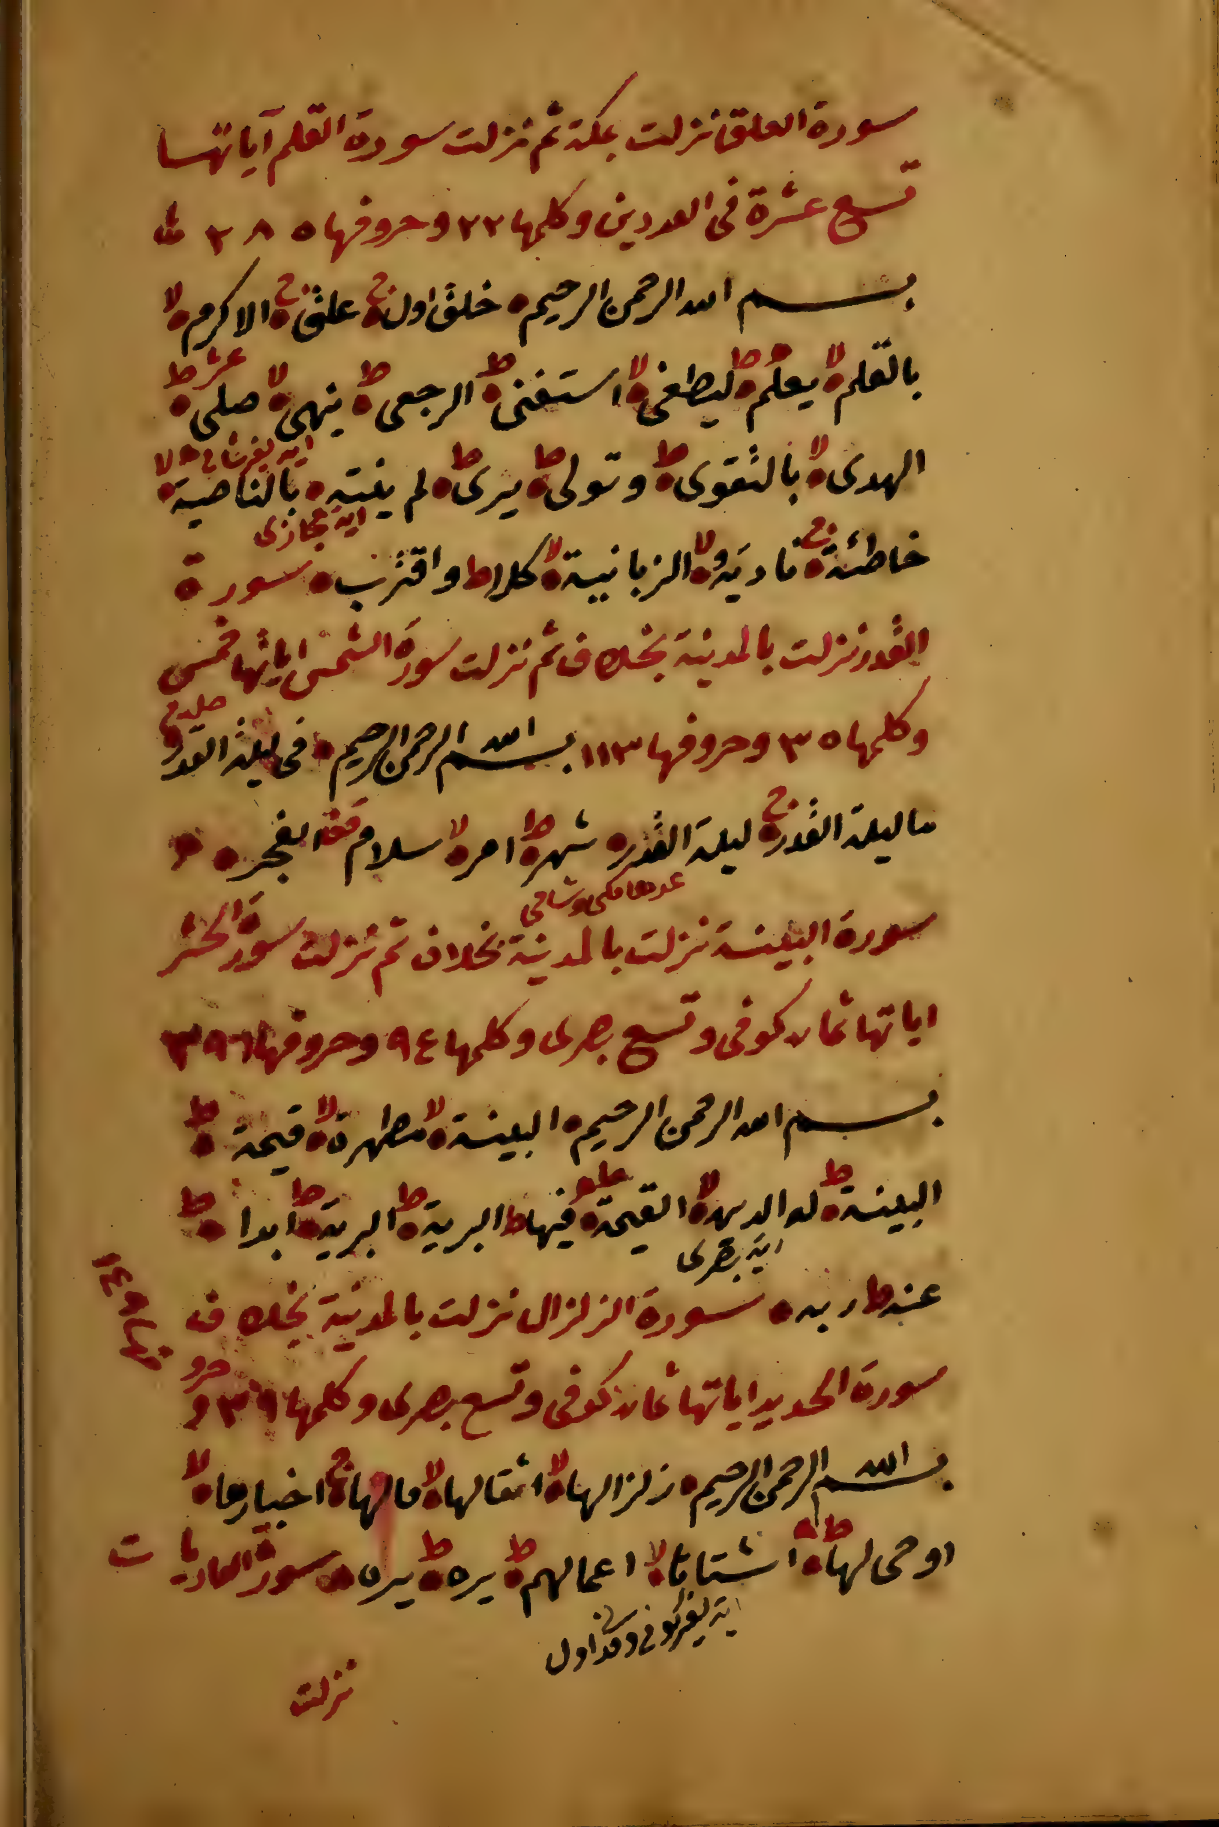 سورة العلق نزلت بمكة ثم نزلت سورة القلم آياتها
تسع عشرة فى العددين وكلمها ٢٢ وحروفها ٢٨٥
بسم الله الرحمن الرحيم خلق ج اول ج علق ج الاكرم لا
بالقلم لا يعلم ط ليطغى لا استغنى ط الرجعى ط ينهى لا صلى ط عشر
الهدى لا بالتقوى ط وتولى ط يرى ط لم ينته بالناصية لا
اية حجازى
خاطئة ج ناديه لا الزبانية لا كلا ط واقترب سورة
القدر نزلت بالمدينة بخلاف ثم نزلت سورة الشمس اياتها خمس
وكلمها ٣٥ وحروفها ١١٣ بسم الله الرحمن الرحيم فى ليلة القدر
ما ليلة القدر ج ليلة القدر شهر ط امر لا سلام قف الفجر
عدها مكى وشامى
سورة البينة نزلت بالمدينة بخلاف ثم نزلت سورة الحشر
اياتها ثمان كوفى وتسع بصرى وكلمها ٩٤ وحروفها ٣٩٦
بسم الله الرحمن الرحيم البينة لا مطهرة لا قيمة ط
البينة ط له الدين لا القيمة ط فيها ط البرية ط البرية ط ابدا ط
اية بصرى
عنه ط ربه سورة الزلزال نزلت بالمدينة بخلاف
سورة الحديد اياتها ثمان كوفى وتسع بصرى وكلمها ٣٩ و حرو
فها ١٤٩
بسم الله الرحمن الرحيم زلزالها لا اثقالها لا مالها ج اخبارها لا
اوحى لها ط اشتاتا لا اعمالهم ط يره ط يره سورة العاديات
اية لغير كوفى ومدنى اول
نزلت